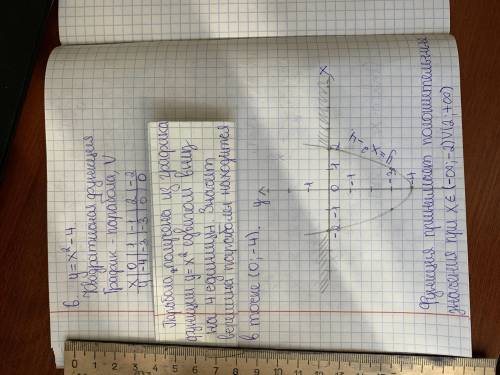 6. y = x² - 4
Квадратичная функция
График - парабола, V
x 0 1 -1 2 -2
y -4 -3 -3 0 0
Парабола получена из графика
функции y = x² сдвигом вниз
на 4 единицы. Значит
вершина параболы находится
в точке (0; -4).
y
1
x
-2 -1 0 1 2
-1
y = x² - 4
-3
-4
Функция принимает положительные
значения при x ∈ (-∞; -2) ∪ (2; +∞)
0 1 2 3 4 5 6 7 8 9 10 11 12 13 14 15